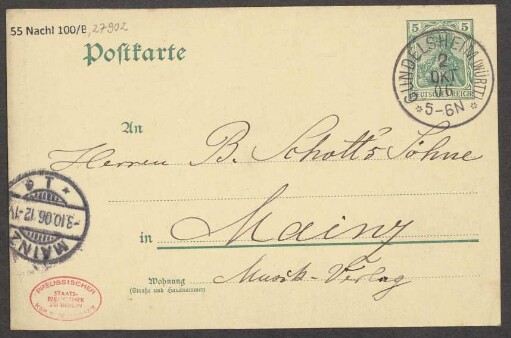 55 Nachl 100/B, 27902
Postkarte
5 5
DEUTSCHES REICH
GUNDELSHEIM (WÜRTT.)
2
OKT
06
*5-6N*
An
Herren B. Schott's Söhne
in Mainz
Wohnung
(Straße und Hausnummer)
Musik-Verlag
MAINZ
-3.10.06.12-1V
* 1 *
PREUSSISCHER
STAATS-
BIBLIOTHEK
ZU BERLIN